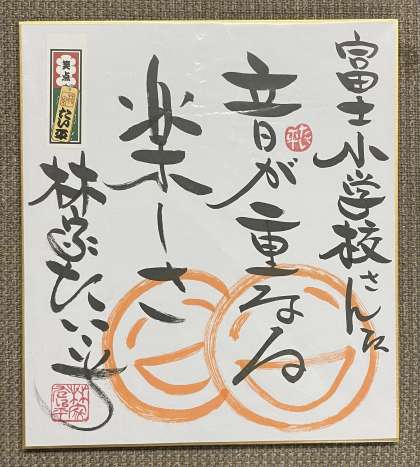 富士小学校さん江
音が重なる
楽しさ
林家たい平
笑点
たい平